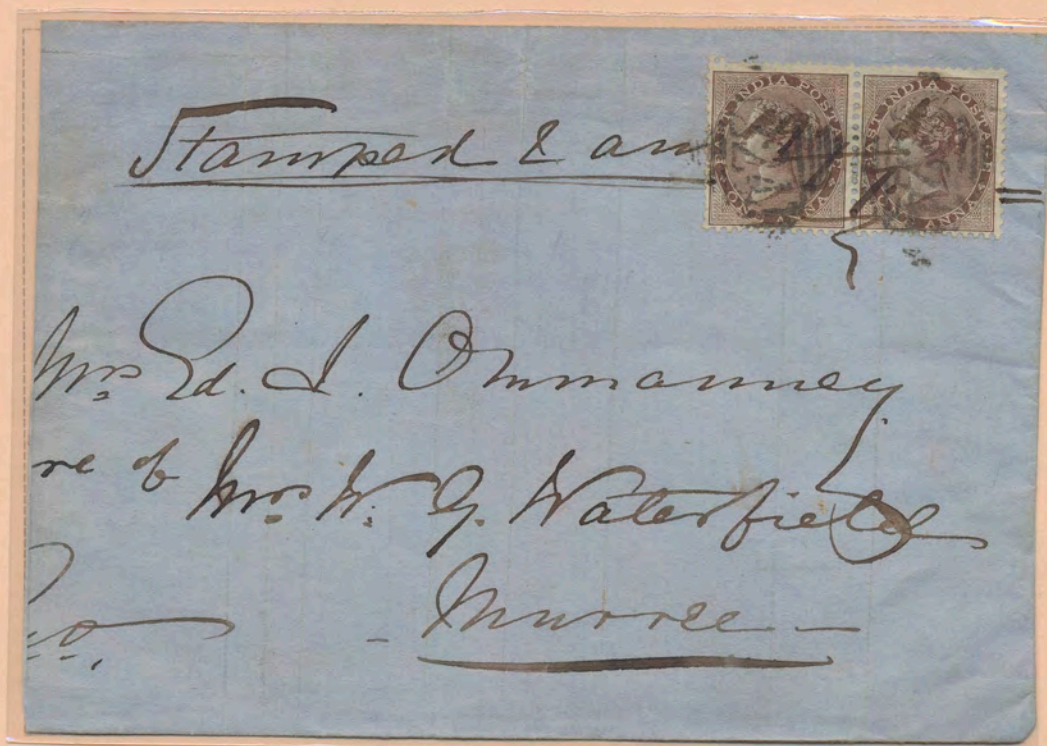 Stamped &
EAST INDIA POSTAGE
ONE ANNA
EAST INDIA POSTAGE
ONE ANNA
Mrs Ed. I. Ommanney
re of Mrs W. G. Waterfield
- Murree -